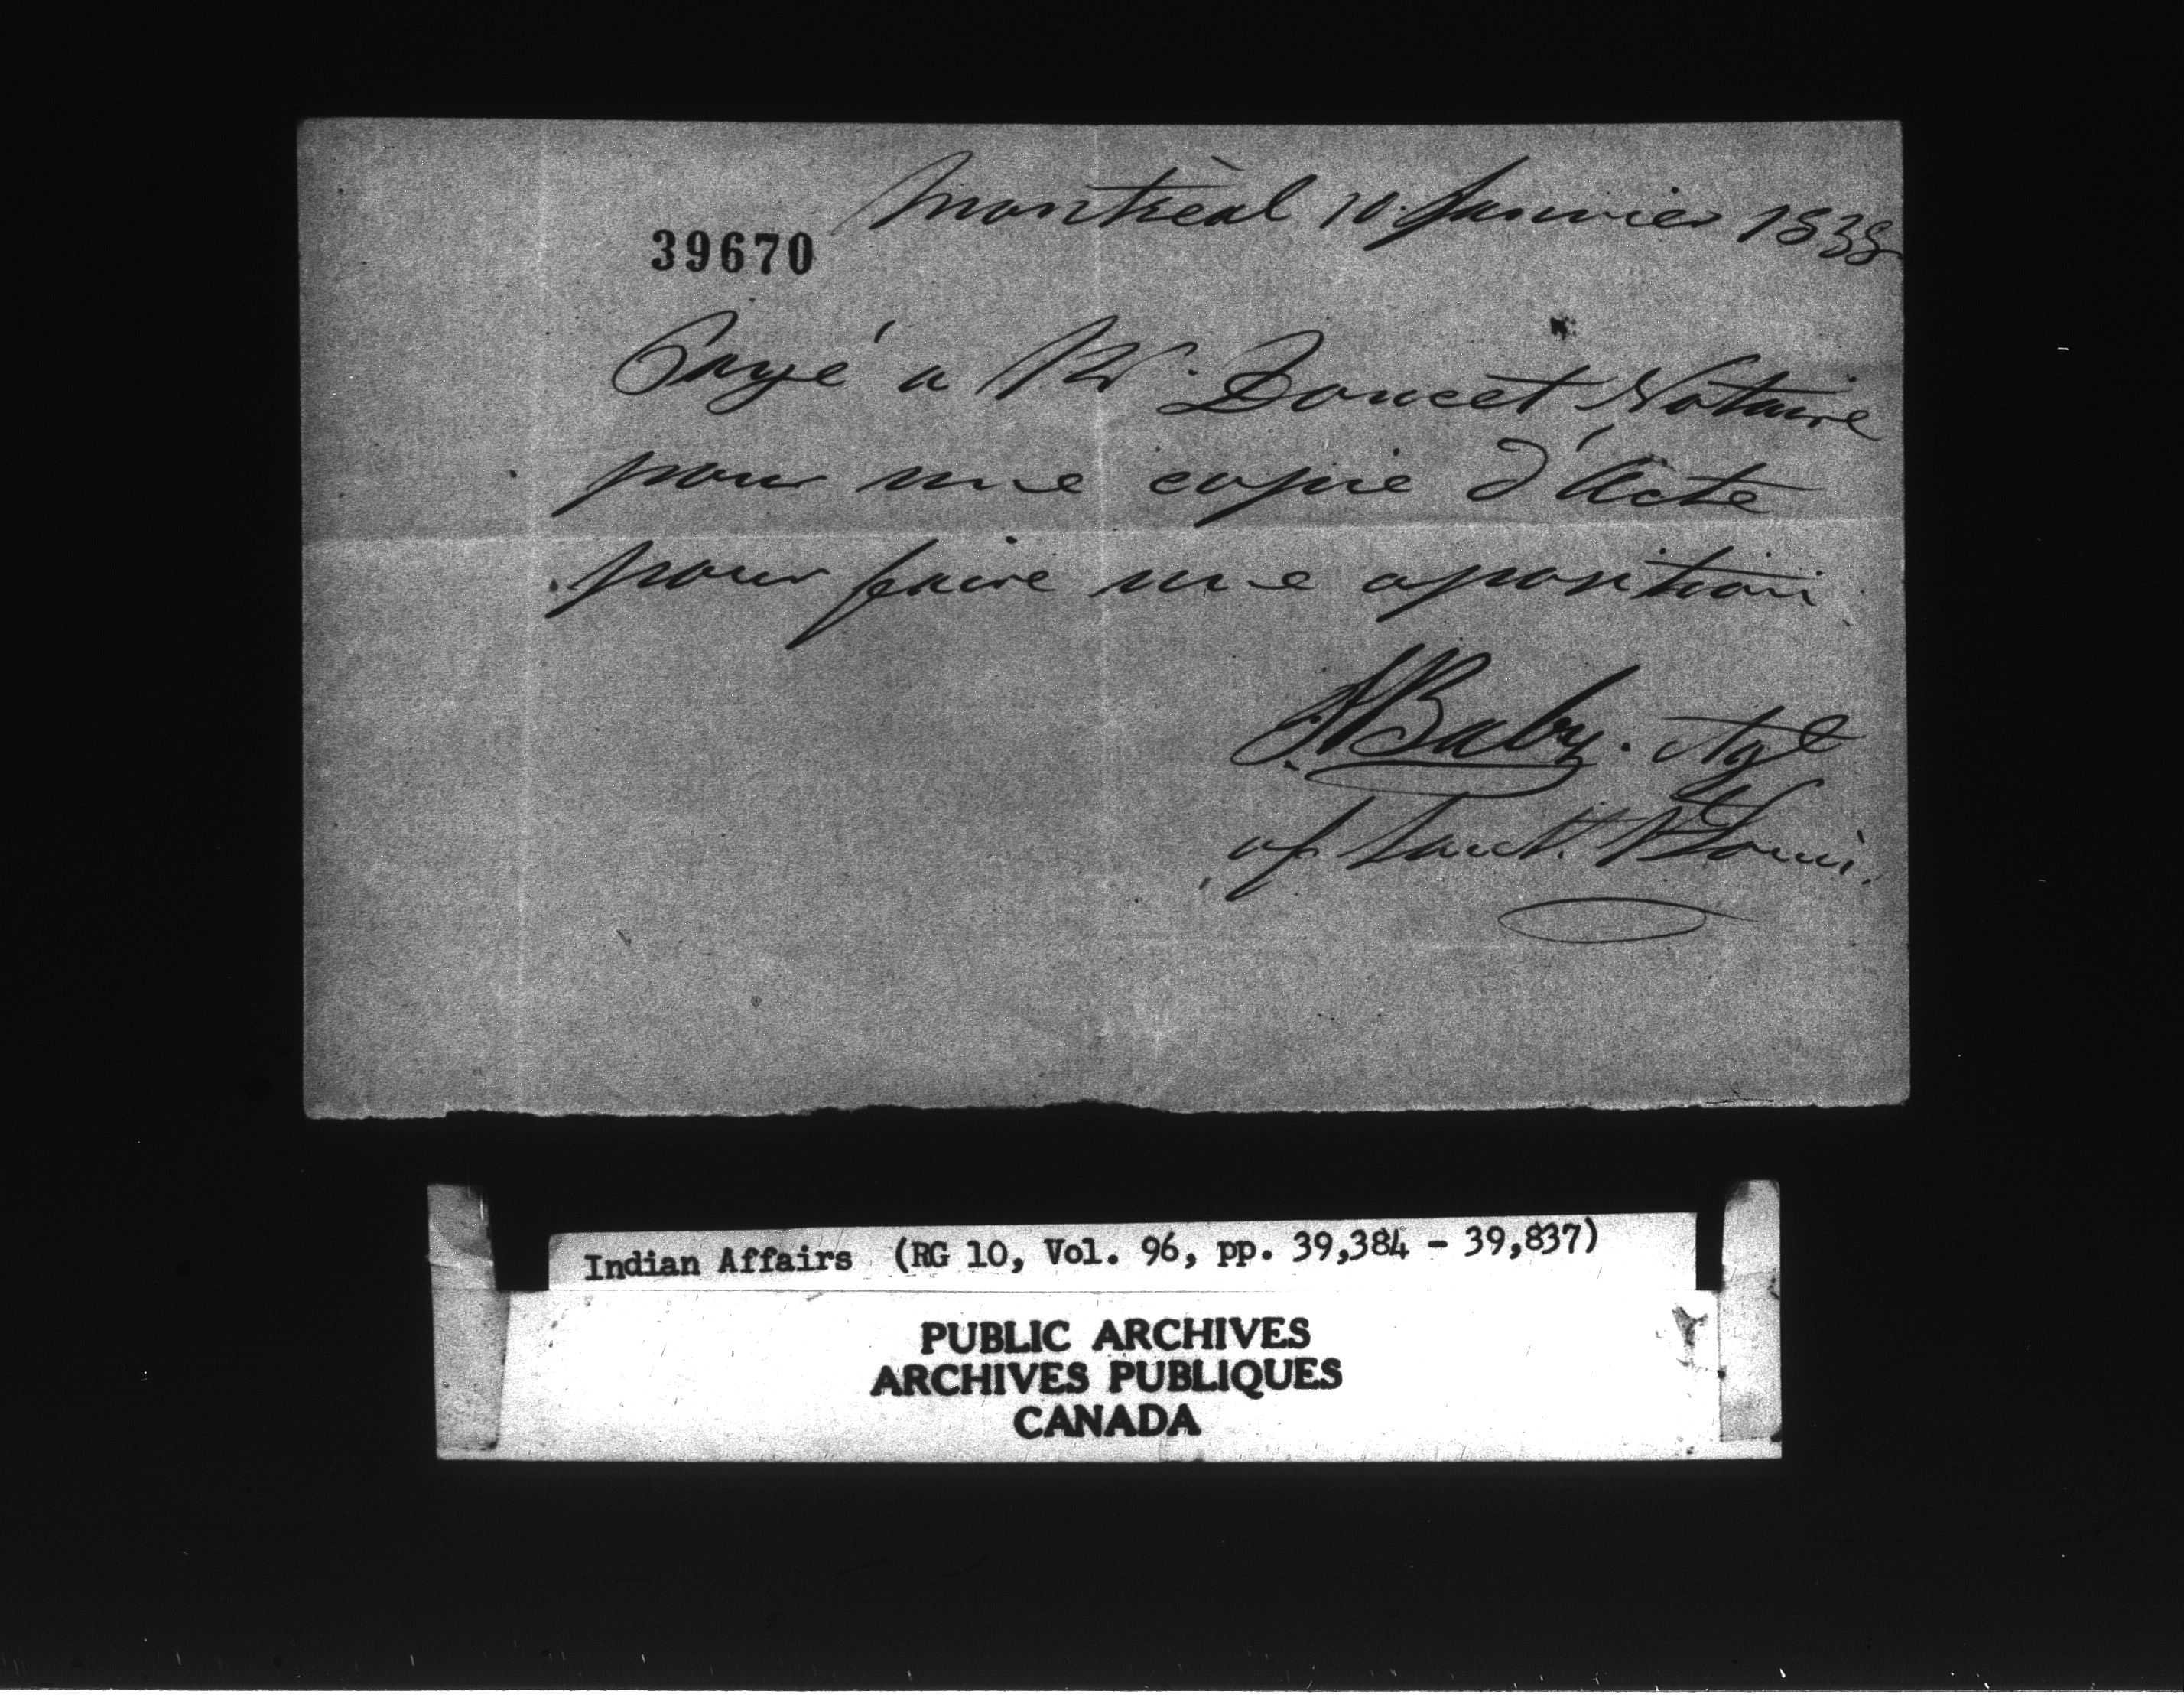 Montréal 10. Janvier 1838
39670
Payé a Mr. Doucet Notaire
pour une copie d'Acte
pour faire une oposition
Baby. Agt
of Sault. St Loui.
Indian Affairs (RG 10, Vol. 96, pp. 39,384 - 39,837)
PUBLIC ARCHIVES
ARCHIVES PUBLIQUES
CANADA